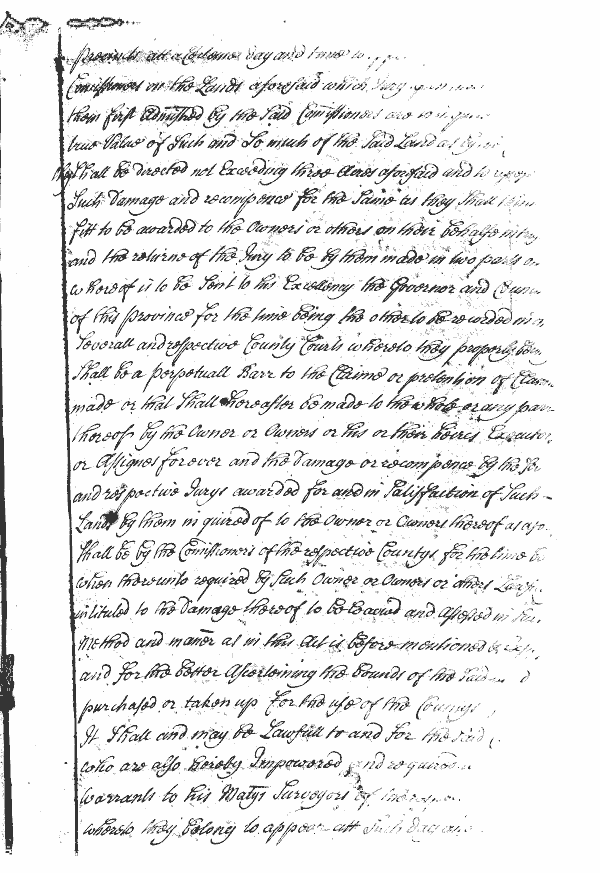 Precincts att a Certeine day and time to
Comissioners on the Lands aforesaid which Jury
them first Admitted by the Said Comissioners are to inquire
true Value of Such and So much of the Said Land as by
they Shall be directed not Exceeding three Acres aforesaid and to
Such Damage and recompence for the Same as they Shall thin
fitt to be awarded to the Owners or others on their behalfe
and the returne of the Jury to be by them made in two parts
whereof is to be Sent to his Excellency the Governor and Coun
of this Province for the time being the other to be recorded in
Severall and respective County Courts whereto they properly
Shall be a perpetuall Barr to the Claime or pretention of Claim
made or that Shall hereafter be made to the whole or any part
thereof by the Owner or Owners or his or their heires Executor
or Assignes forever and the Damage or recompence by the
and respective Jurys awarded for and in Satisfaction of Such
Lands by them inquired of to the Owner or Owners thereof as
Shall be by the Comissioners of the respective Countys for the time
when thereunto required by Such Owner or Owners or others
intituled to the Damage thereof to be Leavied and Assessed in
Method and maner as in this Act is before mentioned
and for the better Ascerteining the bounds of the Said
purchased or taken up for the use of the Countys
It Shall and may be Lawfull to and for the Said
who are also hereby Impowered and required
Warrants to his Matys Surveyors of the
whereto they belong to appear att Such day